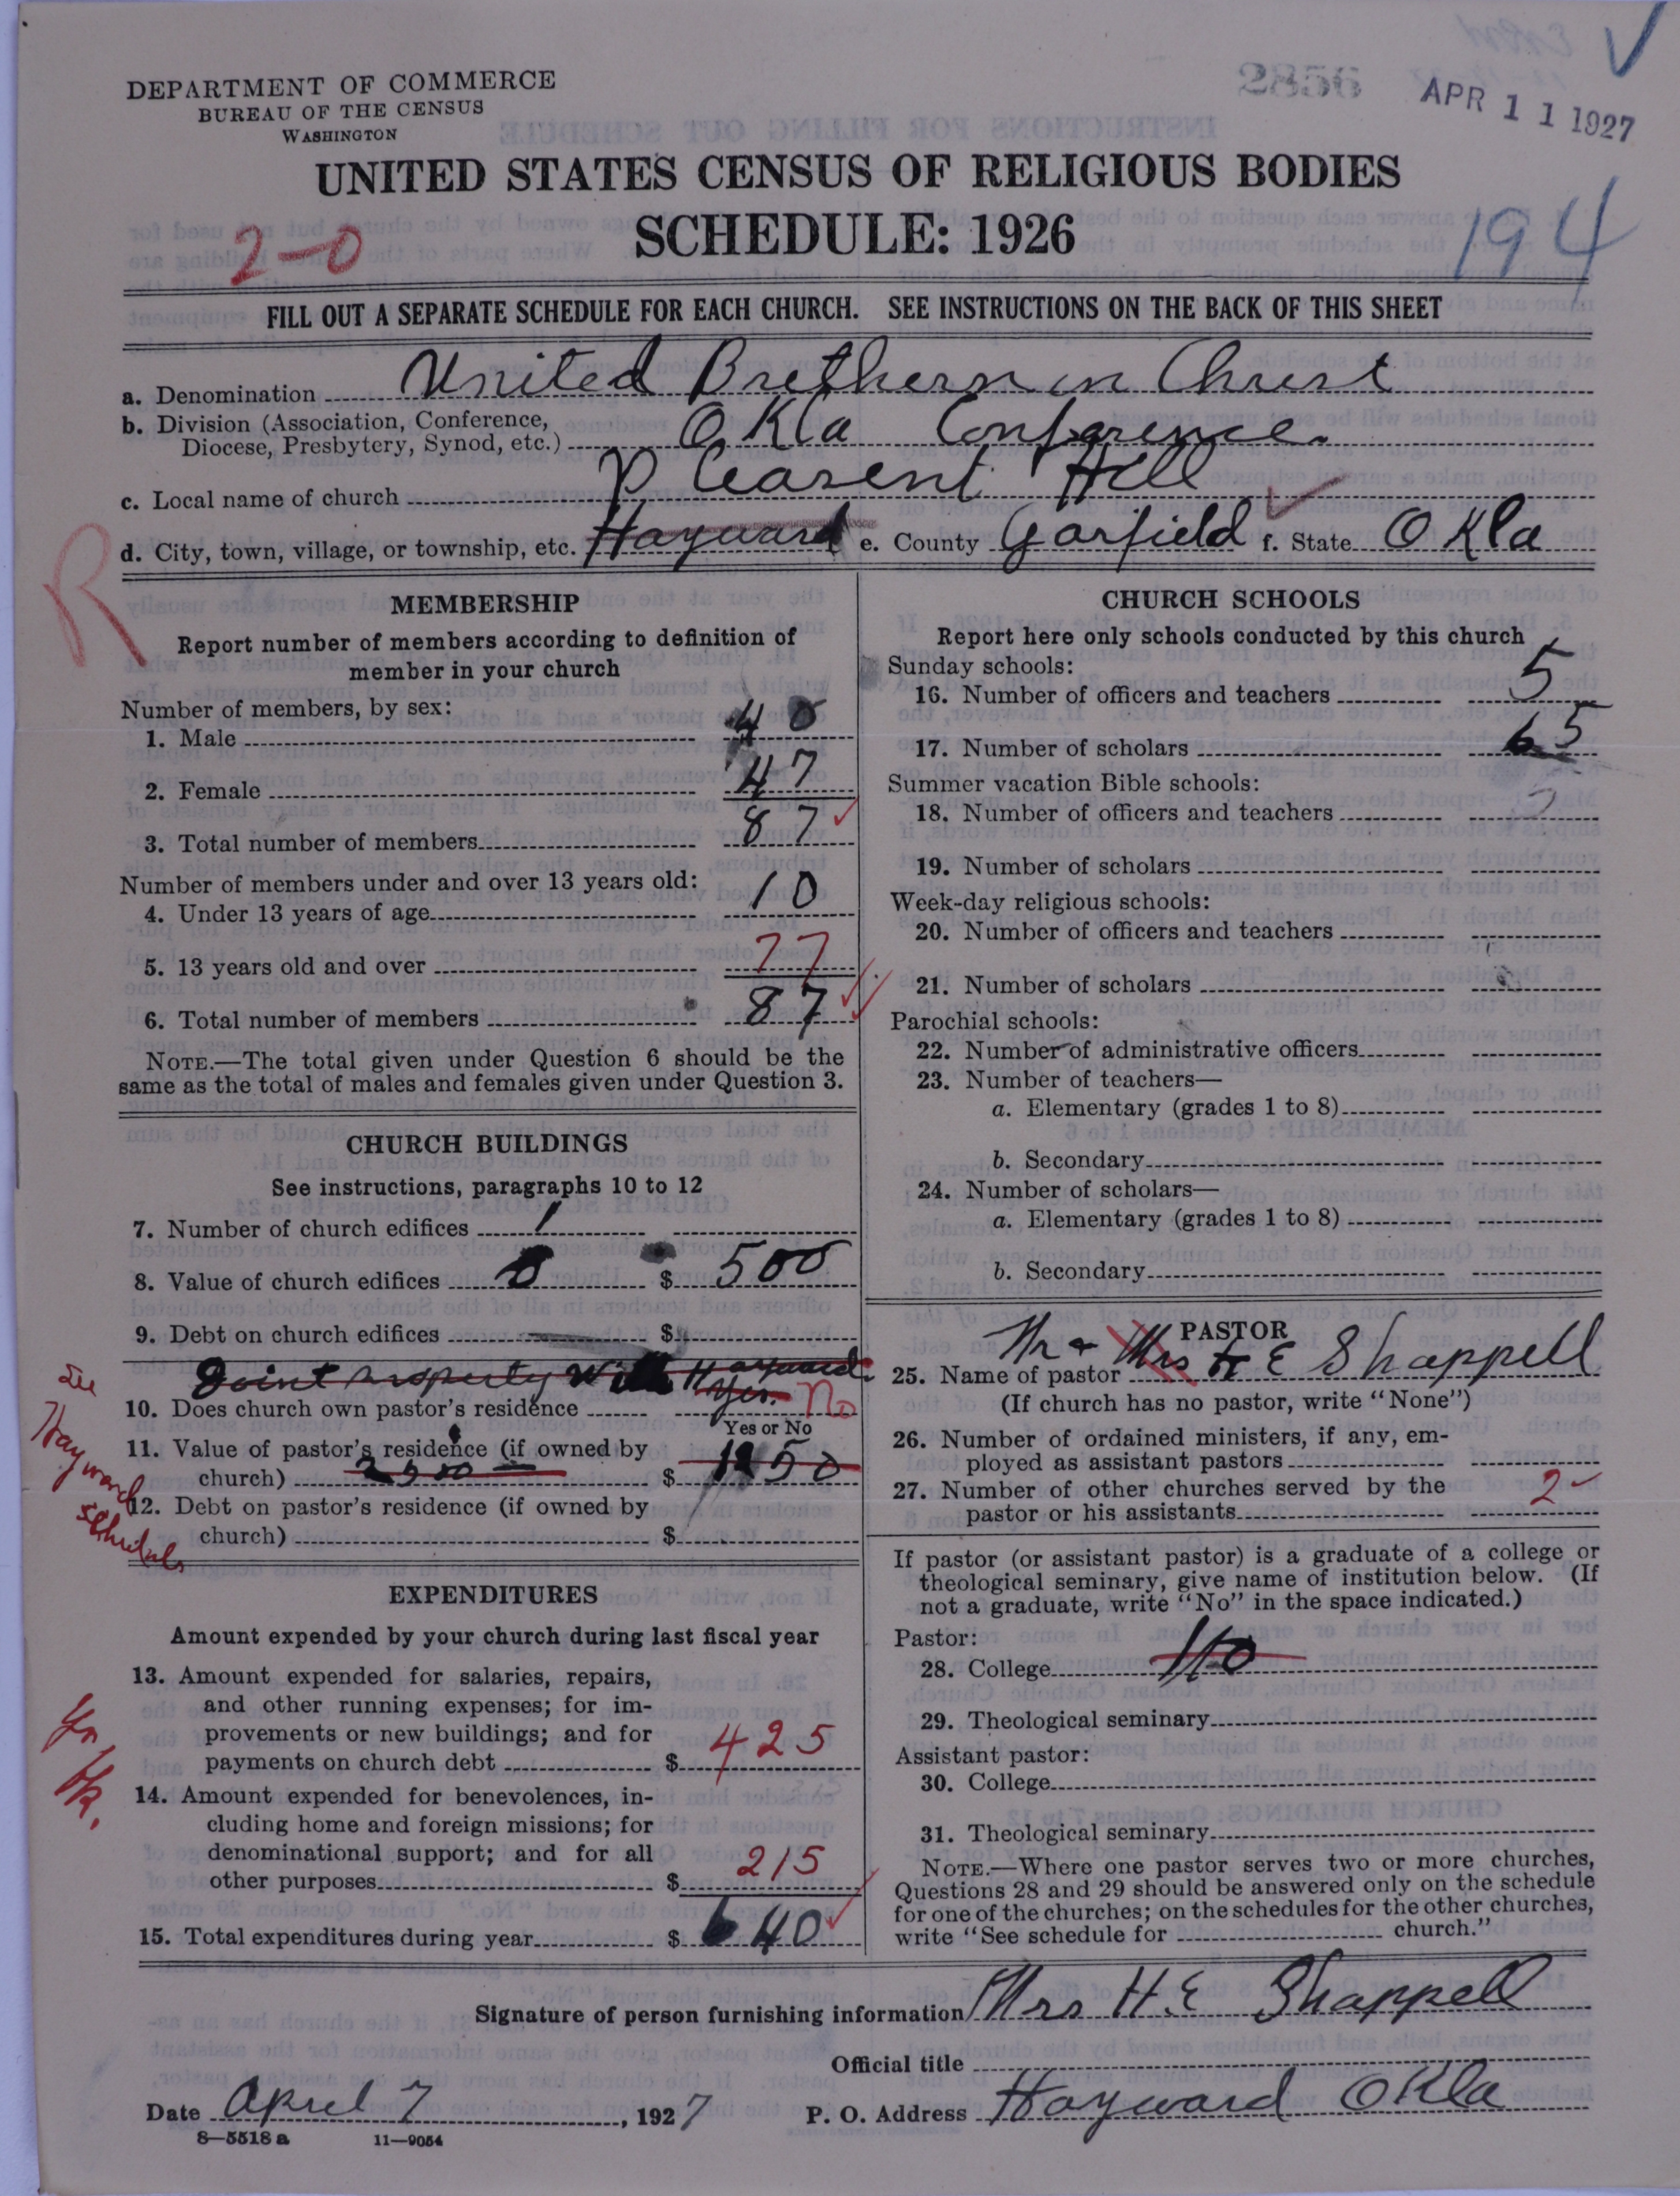 DEPARTMENT OF COMMERCE
BUREAU OF THE CENSUS
WASHINGTON
2856
APR 11 1927
UNITED STATES CENSUS OF RELIGIOUS BODIES
SCHEDULE: 1926
2-0
194
FILL OUT A SEPARATE SCHEDULE FOR EACH CHURCH. SEE INSTRUCTIONS ON THE BACK OF THIS SHEET
a. Denomination United Brethern in Christ
b. Division (Association, Conference,
Diocese, Presbytery, Synod, etc.) Okla Conference.
c. Local name of church Pleasent Hill
d. City, town, village, or township, etc. Hayward e. County Garfield f. State Okla
R
MEMBERSHIP
Report number of members according to definition of
member in your church
Number of members, by sex:
1. Male 40
2. Female 47
3. Total number of members 87
Number of members under and over 13 years old:
4. Under 13 years of age 10
5. 13 years old and over 77
6. Total number of members 87
NOTE.—The total given under Question 6 should be the
same as the total of males and females given under Question 3.
CHURCH BUILDINGS
See instructions, paragraphs 10 to 12
7. Number of church edifices 1
8. Value of church edifices $ 500
9. Debt on church edifices $
Joint property With Hayward
10. Does church own pastor's residence Yes. No
Yes or No
11. Value of pastor's residence (if owned by
church) 2500 $ 1250
12. Debt on pastor's residence (if owned by
church) $
See
Hayward
schedule
EXPENDITURES
Amount expended by your church during last fiscal year
13. Amount expended for salaries, repairs,
and other running expenses; for im-
provements or new buildings; and for
payments on church debt $ 425
Yr
Bk.
14. Amount expended for benevolences, in-
cluding home and foreign missions; for
denominational support; and for all
other purposes $ 215
15. Total expenditures during year $ 640
CHURCH SCHOOLS
Report here only schools conducted by this church
Sunday schools:
16. Number of officers and teachers 5
17. Number of scholars 65
Summer vacation Bible schools:
18. Number of officers and teachers
19. Number of scholars
Week-day religious schools:
20. Number of officers and teachers
21. Number of scholars
Parochial schools:
22. Number of administrative officers
23. Number of teachers—
a. Elementary (grades 1 to 8)
b. Secondary
24. Number of scholars—
a. Elementary (grades 1 to 8)
b. Secondary
PASTOR
25. Name of pastor Mr & Mrs H E Shappell
(If church has no pastor, write "None")
26. Number of ordained ministers, if any, em-
ployed as assistant pastors
27. Number of other churches served by the
pastor or his assistants 2
If pastor (or assistant pastor) is a graduate of a college or
theological seminary, give name of institution below. (If
not a graduate, write "No" in the space indicated.)
Pastor:
28. College No
29. Theological seminary
Assistant pastor:
30. College
31. Theological seminary
NOTE.—Where one pastor serves two or more churches,
Questions 28 and 29 should be answered only on the schedule
for one of the churches; on the schedules for the other churches,
write "See schedule for church."
Signature of person furnishing information Mrs H.E Shappell
Official title
Date April 7, 1927 P. O. Address Hayward Okla
8—5518 a 11—9054